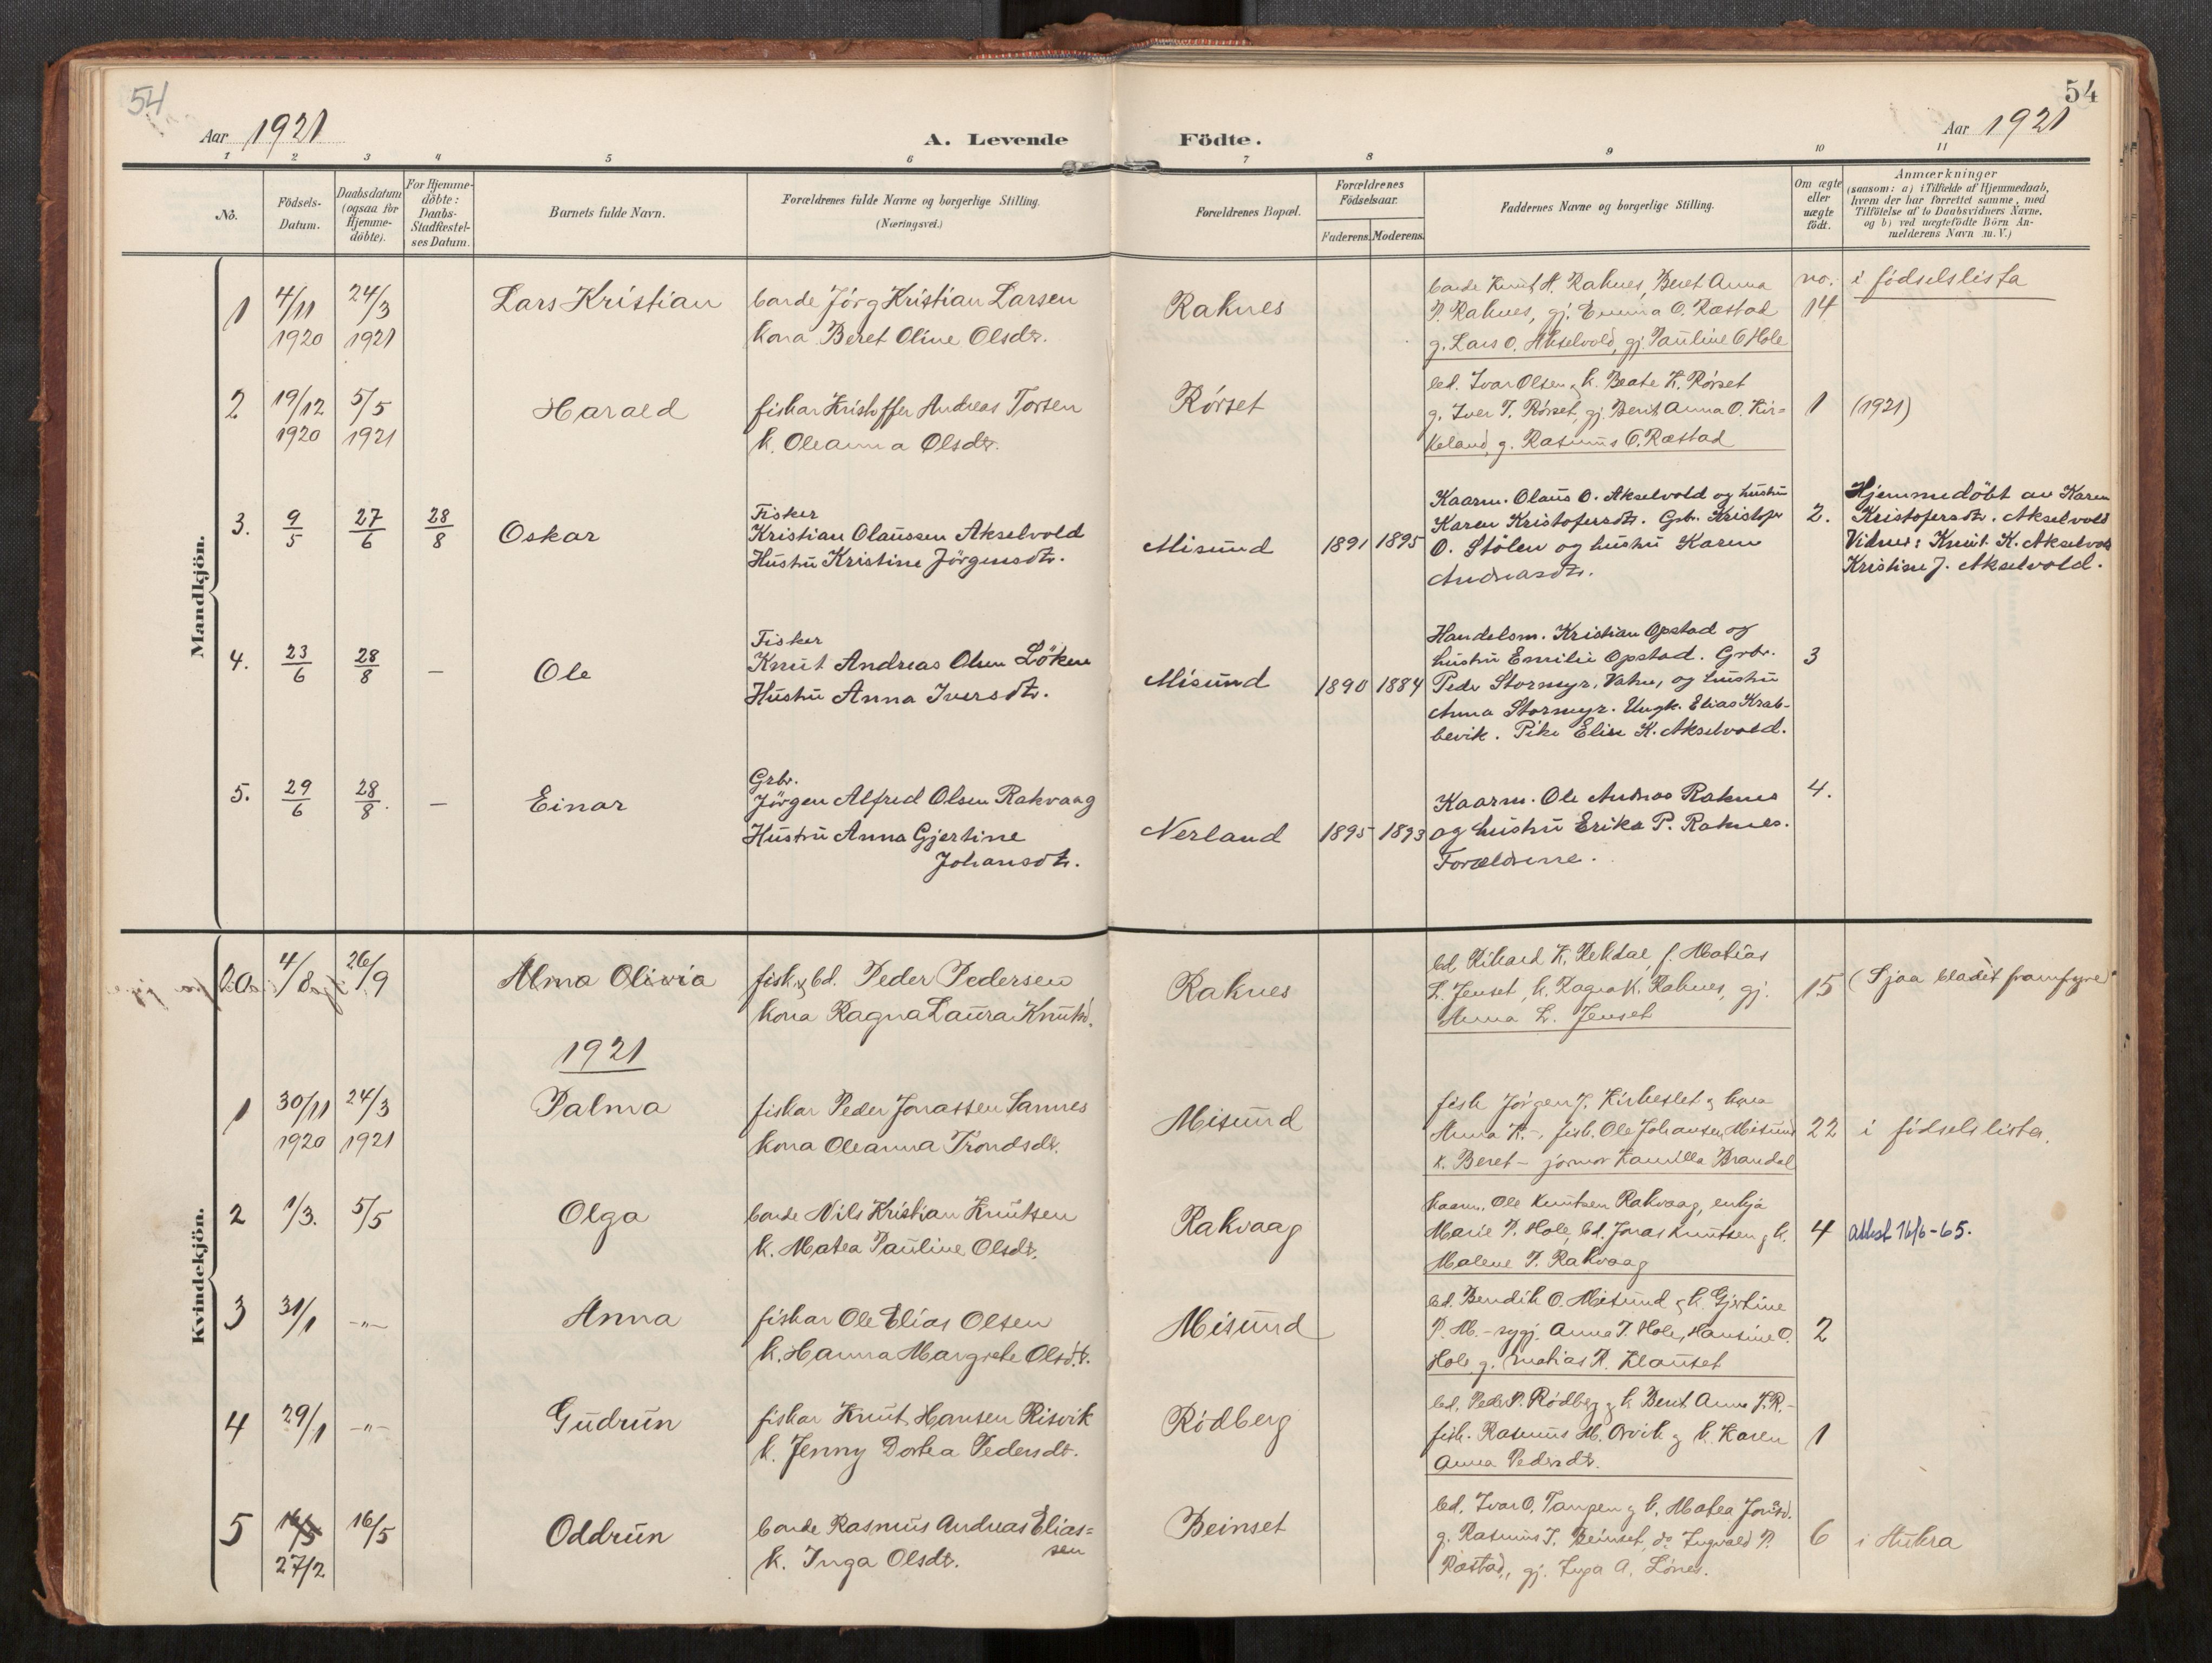 54
54
Aar 1921
A. Levende
Födte.
Aar 1921
1 2 3 4 5 6 7 8 9 10 11
No.
Födsels-
Datum.
Daabsdatum
(ogsaa for
Hjemme-
döbte).
For Hjemme-
döbte:
Daabs-
Stadfæstel-
ses Datum.
Barnets fulde Navn.
Forældrenes fulde Navne og borgerlige Stilling.
(Næringsvei.)
Forældrenes Bopæl.
Forældrenes
Födselsaar.
Faderens. Moderens.
Faddernes Navne og borgerlige Stilling.
Om ægte
eller
uægte
födt.
Anmærkninger
(saasom: a) i Tilfælde af Hjemmedaab,
hvem der har forrettet samme, med
Tilföielse af to Daabsvidners Navne,
og b) ved uægtefödte Börn An-
melderens Navn m. V.)
Mandkjön.
1
4/11
1920
24/3
1921
Lars Kristian
bonde Jörg Kristian Larsen
kona Beret Oline Olsdtr.
Raknes
bonde Knut H. Raknes, Beret Anna
P. Raknes, gj. Emma O. Ræstad
g. Lars O. Akselvold, gj. Pauline O Hole
no.
14
i födselslista
2
19/12
1920
5/5
1921
Harald
fiskar Kristoffer Andreas Torsen
k. Oleanna Olsdtr.
Rörset
bd. Ivar Olsen & k. Beate K. Rörset
g. Iver T. Rörset, gj. Berit Anna O. Kir=
keland, g. Rasmus O. Ræstad
1
(1921)
3.
9/5
27/6
28/8
Oskar
Fisker
Kristian Olaussen Akselvold
Hustru Kristine Jörgensdtr.
Misund
1891 1895
Kaarm. Olaus O. Akselvold og hustru
Karen Kristofersdtr. Grbr. Kristofer
O. Stölen og hustru Karen
Andreasdtr.
2.
Hjemmedöbt av Karen
Kristofersdtr. Akselvold
Vidner: Knut K. Akselvold
Kristine J. Akselvold.
4.
23/6
28/8
—
Ole
Fisker
Knut Andreas Olsen Löken
Hustru Anna Iversdtr.
Misund
1890 1884
Handelsm. Kristian Opstad og
hustru Emilie Opstad. Grbr.
Peder Stormyr, og hustru
Anna Stormyr. Ungk. Elias Krab-
bevik. Pike Elise K. Akselvold.
3
5.
29/6
28/8.
—
Einar
Grbr.
Jörgen Alfred Olsen Rakvaag
Hustru Anna Gjertine
Johansdtr.
Nerland
1895 1893
Kaarm. Ole Andreas Raknes
og hustru Erika P. Raknes.
Forældrene.
4.
Kvindekjön.
4/8
26/9
Alma Olivia
fisk. & bd. Peder Pedersen
kona Ragna Laura Knutsd.
Raknes
bd. Rikard K. Rekdal, f. Matias
L. Jenset, k. Ragna K. Raknes, gj.
Anna L. Jenset
15
(Sjaa bladet framfyre)
1921
1
30/11
1920
24/3
1921
Palma
fiskar Peder Jonassen Sannes
kona Oleanna Trondsdtr.
Misund
fisk Jörgen J. Kirkeslet & kona
Anna K. -, fisk. Ole Johansen Misund
k. Beret - jormor Kamilla Brandal
22
i födselslista.
2
1/3.
5/5
Olga
bonde Nils Kristian Knutsen
k. Matea Pauline Olsdtr.
Rakvaag
kaarm. Ole Knutsen Rakvaag, enkja
Marie P. Hole, bd. Jonas Knutsen & k.
Malene T. Rakvaag
4
attest 16/6-65.
3
31/1
-"-
Anna
fiskar Ole Elias Olsen
k. Hanna Margrete Olsdtr.
Misund
bd. Bendik O. Misund & k. Gjertine
P. M. - sygj. Anna T. Hole, Hansine O.
Hole g. Matias R. Klauset
2
4
29/1
-"-
Gudrun
fiskar Knut Hansen Risvik
k. Jenny Dortea Pedersdtr.
Rödberg
bd. Peder P. Rödberg & k. Berit Anna J. R. -
fisk. Rasmus M. Orvik & k. Karen
Anna Pedersdtr.
1
5
16/5
27/2
16/5
Oddrun
bonde Rasmus Andreas Elias=
sen
k. Inga Olsdtr.
Beinset
bd. Ivar O. Tangen & k. Matea Jonsd.
g. Rasmus J. Beinset, do Ingvald P.
Ræstad, gj. Inga A. Lönes.
6
i Aukra